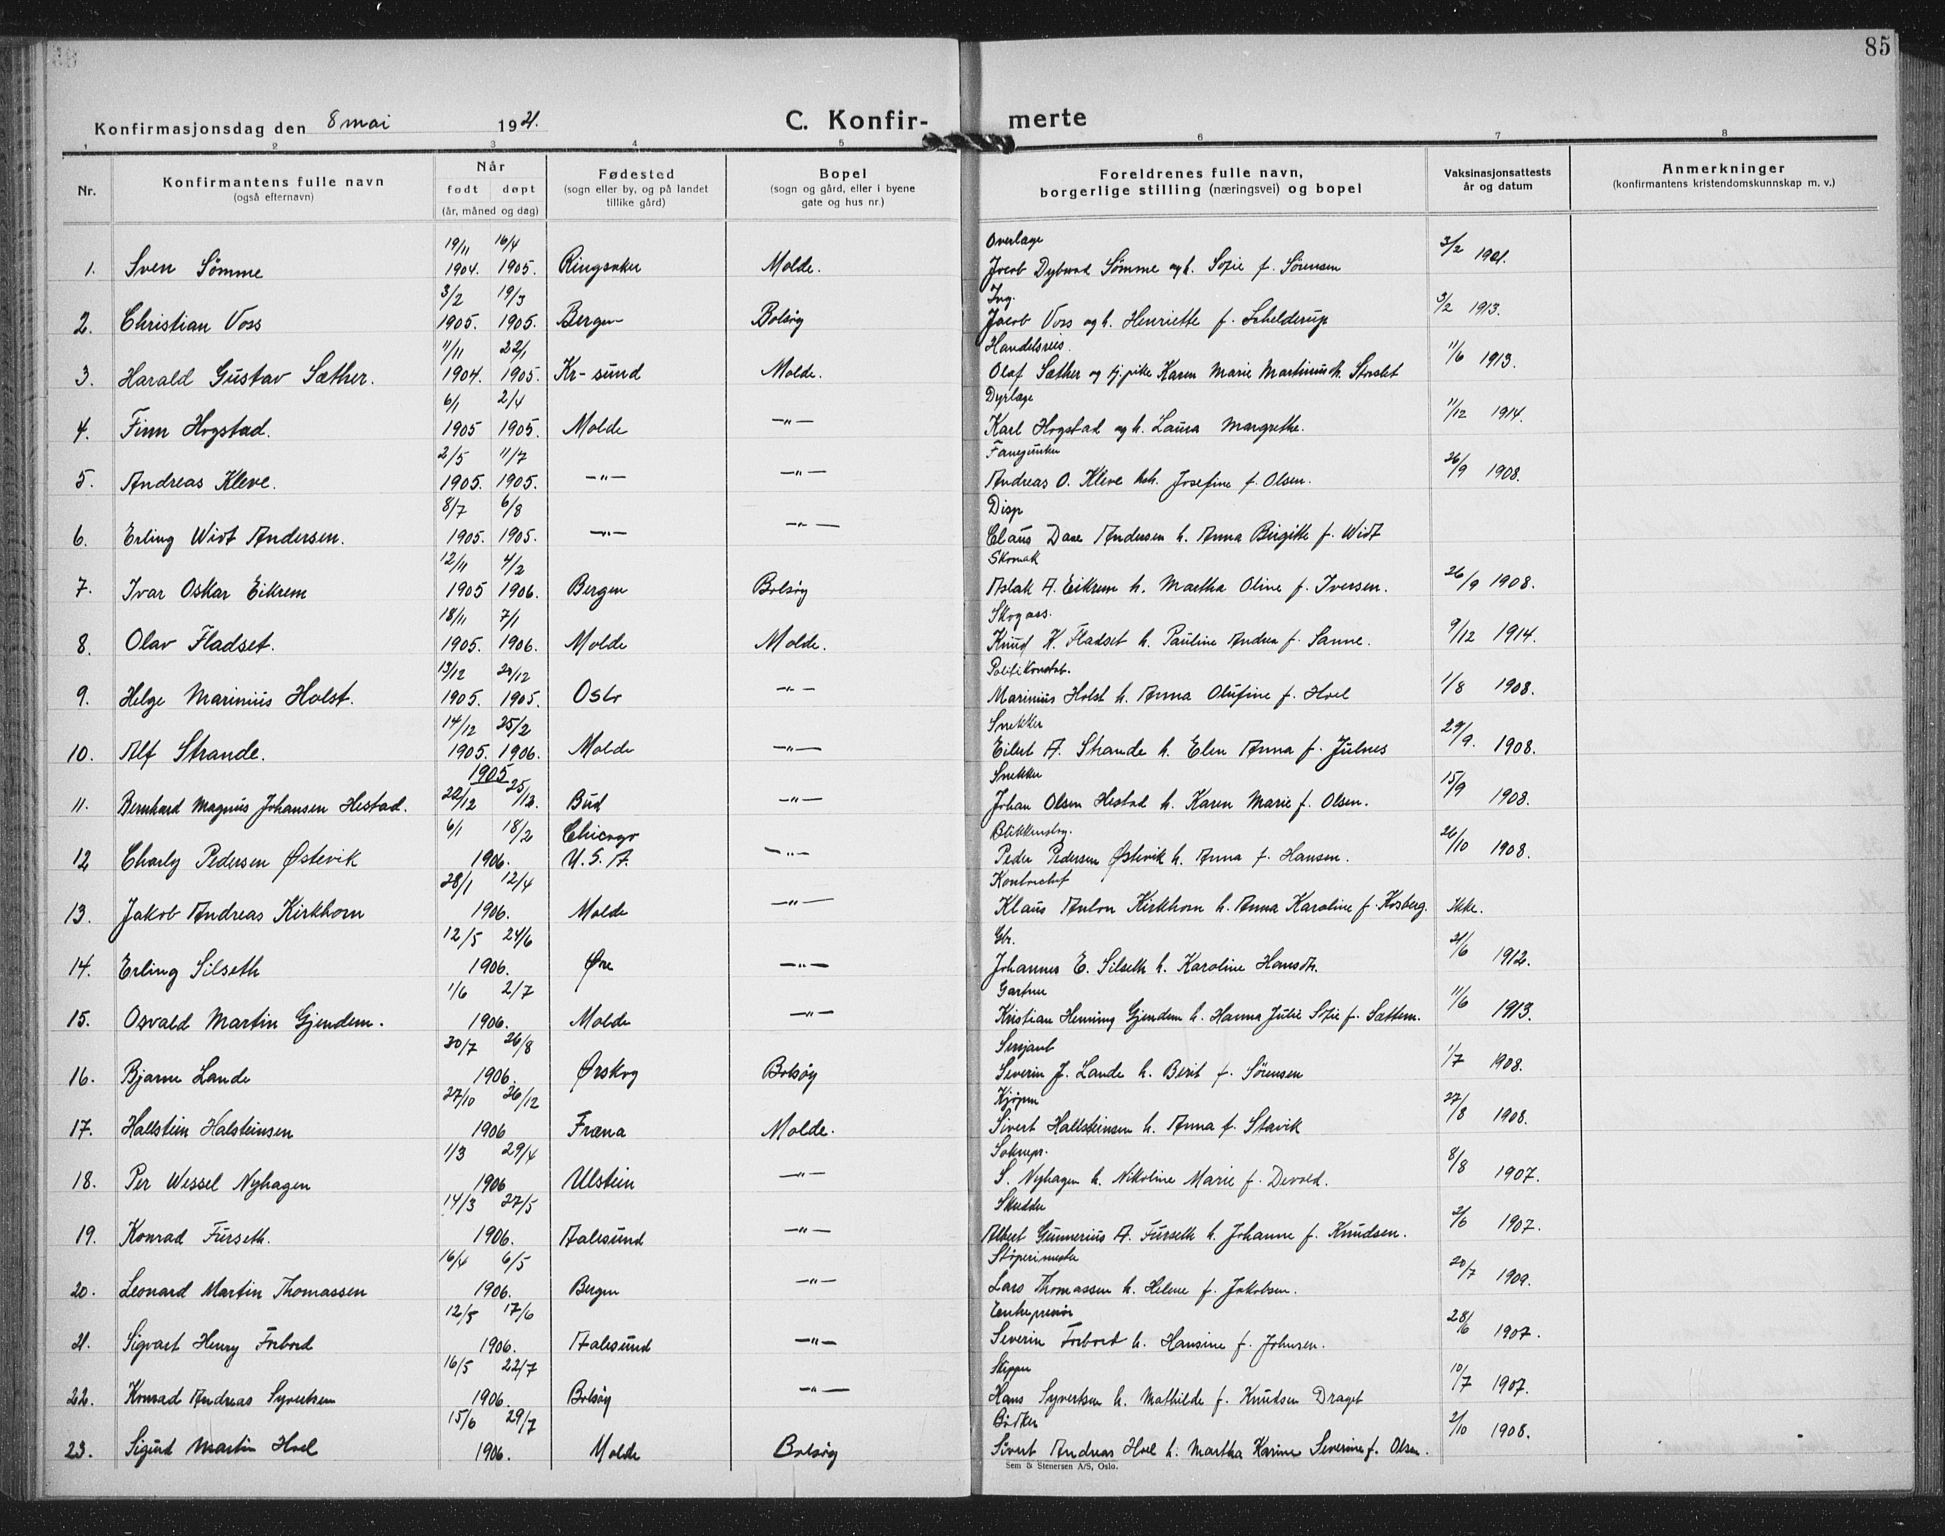 85
Konfirmasjonsdag den 8 mai 1921.
C. Konfir- merte
1 2 3 4 5 6 7 8
Nr.
Konfirmantens fulle navn
(også efternavn)
Når
født døpt
(år, måned og dag)
Fødested
(sogn eller by, og på landet
tillike gård)
Bopel
(sogn og gård, eller i byene
gate og hus nr.)
Foreldrenes fulle navn,
borgerlige stilling (næringsvei) og bopel
Vaksinasjonsattests
år og datum
Anmerkninger
(konfirmantens kristendomskunnskap m. v.)
19/11 16/4 Overlæge
1. Sven Sømme 1904. 1905. Ringsaker Molde. Jacob Dybwad Sømme og h. Sofie f. Sørensen 3/2 1921.
3/2 19/3 Ing.
2. Christian Voss 1905. 1905. Bergen Bolsøy Jacob Voss og h. Henriette f. Schelderup 3/2 1913.
11/11 22/1 Handelsreis.
3. Harald Gustav Sæther. 1904. 1905. Kr-sund Molde. Olaf Sæther og tj.pike Karen Marie Martinusdt. Storslet 11/6 1913.
6/1 2/4 Dyrlæge
4. Finn Hogstad. 1905 1905. Molde —"— Karl Hogstad og h. Laura Margrethe. 11/12 1914.
2/5 11/7 Fanejunker
5. Andreas Kleve. 1905. 1905. —"— —"— Andreas O. Kleve h. Josefine f. Olsen. 26/9 1908.
8/7 6/8 Disp
6. Erling Widt Andersen. 1905. 1905. —"— —"— Claus Dase Andersen h. Anna Birgitte f. Widt
12/11 4/2 Skomak
7. Ivar Oskar Eikrem 1905 1906. Bergen Bolsøy Aslak A. Eikrem h. Martha Oline f. Iversen. 26/9 1908.
18/11 7/1 Skogass.
8. Olav Fladset. 1905. 1906. Molde Molde. Knud K. Fladset h. Pauline Andrea f. Sanne. 9/12 1914.
13/12 Politikonstab.
9. Helge Marinius Holst. 1905. 1905. Oslo —"— Marinius Holst h. Anna Olufine f. Hoel 1/8 1908.
14/12 25/2 Snekker
10. Alf Strande. 1905. 1906. Molde —"— Eilert A. Strande h. Elen Anna f. Julnes 29/9. 1908.
1905 Snekker
11. Bernhard Magnus Johansen Hestad. 22/12 25/12. Bud —"— Johan Olsen Hestad h. Karen Marie f. Olsen. 15/9 1908.
6/1 18/2 Chicago Blikkenslag.
12 Charly Pedersen Østevik 1906. U. S. A. —"— Peder Pedersen Østevik h. Anna f. Hansen. 26/10 1908.
28/1 12/4 Kontorchef
13. Jakob Andreas Kirkhorn 1906. Molde —"— Klaus Anton Kirkhorn h. Anna Karoline f. Kosberg. Ikke.
12/5 24/6 Gbr.
14. Erling Silseth 1906. Øre —"— Johannes E. Silseth h. Karoline Hansdt. 21/6 1912.
1/6 2/7 Gartner
15. Osvald Martin Gjendem. 1906. Molde —"— Kristian Henning Gjendem h. Hanna Julie Sofie f. Sættem. 11/6 1913.
30/7 26/8 Sersjant
16. Bjarne Lande 1906. Ørskog Bolsøy Severin J. Lande h. Berit f. Sørensen 1/7 1908.
27/10 26/12 Kjøpm
17. Hallstein Halsteinsen 1906 Fræna Molde. Sivert Hallsteinsen h. Anna f. Stavik 27/8 1908.
1/3 29/4 Soknepr.
18. Per Wessel Nyhagen 1906 Ulstein —"— S. Nyhagen h. Nikoline Marie f. Devold. 8/8 1907.
14/3 27/5 Skredder
19. Konrad Furseth. 1906. Aalesund —"— Albert Gunnerius A. Furseth h. Johanne f. Knudsen. 2/6 1907.
16/4 6/5 Støperimester
20. Leonard Martin Thomassen 1906. Bergen —"— Lars Thomassen h. Helene f. Jakobsen. 20/7 1909.
12/5 17/6 Entreprenør
21. Sigvart Henry Forbord 1906. Aalesund —"— Severin Forbord h. Hansine f. Johnsen. 28/6 1907.
16/5 22/7 Skipper
22. Konrad Andreas Syvertsen 1906. Bolsøy —"— Hans Syvertsen h. Mathilde f. Knudsen Draget 10/7 1907.
15/6 29/7 Bødker
23. Sigurd Martin Hoel 1906. Molde Bolsøy Sivert Andreas Hoel h. Martha Karine Severine f. Olsen. 2/10 1908.
Sem & Stenersen A/S, Oslo.